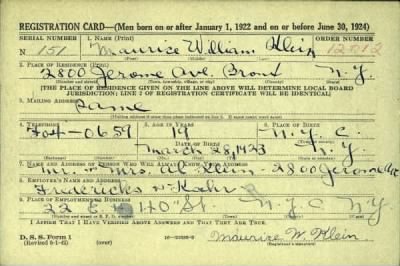 REGISTRATION CARD—(Men born on or after January 1, 1922 and on or before June 30, 1924)
SERIAL NUMBER 1. NAME (Print) ORDER NUMBER
N 151 Maurice William Klein 12012
2. PLACE OF RESIDENCE (Print)
2800 Jerome Ave. Bronx N.Y.
[THE PLACE OF RESIDENCE GIVEN ON THE LINE ABOVE WILL DETERMINE LOCAL BOARD
JURISDICTION; LINE 2 OF REGISTRATION CERTIFICATE WILL BE IDENTICAL]
3. MAILING ADDRESS
Same
4. TELEPHONE 5. AGE IN YEARS 6. PLACE OF BIRTH
Fo4-0659 19 N.Y.C.
DATE OF BIRTH
March 28, 1923 N.Y.
7. NAME AND ADDRESS OF PERSON WHO WILL ALWAYS KNOW YOUR ADDRESS
Mr. Mrs. Klein - 2800 Jerome Ave
8. EMPLOYER'S NAME AND ADDRESS
Fredericks
9. PLACE OF EMPLOYMENT OR BUSINESS
22 E. 40 St. N.Y.C. N.Y.
I AFFIRM THAT I HAVE VERIFIED ABOVE ANSWERS AND THAT THEY ARE TRUE.
D. S. S. Form 1
Maurice W. Klein